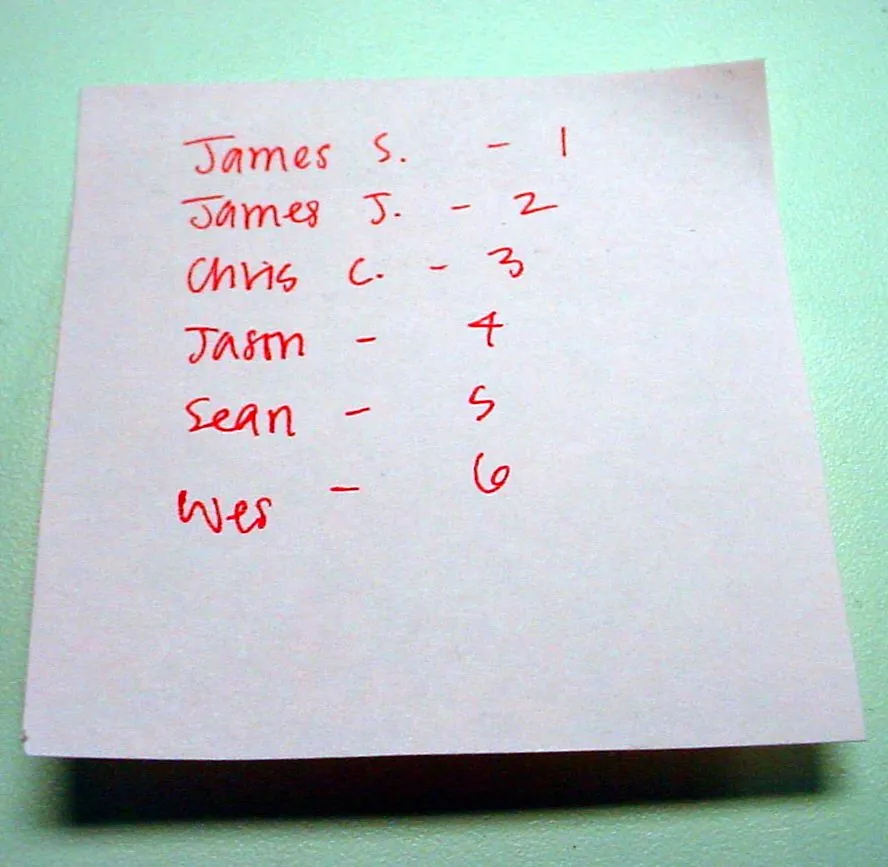 James S. - 1
James J. - 2
Chris C. - 3
Jason - 4
Sean - 5
Wes - 6